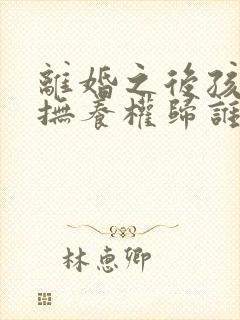 離婚之後孩
撫養權歸誰
林惠卿